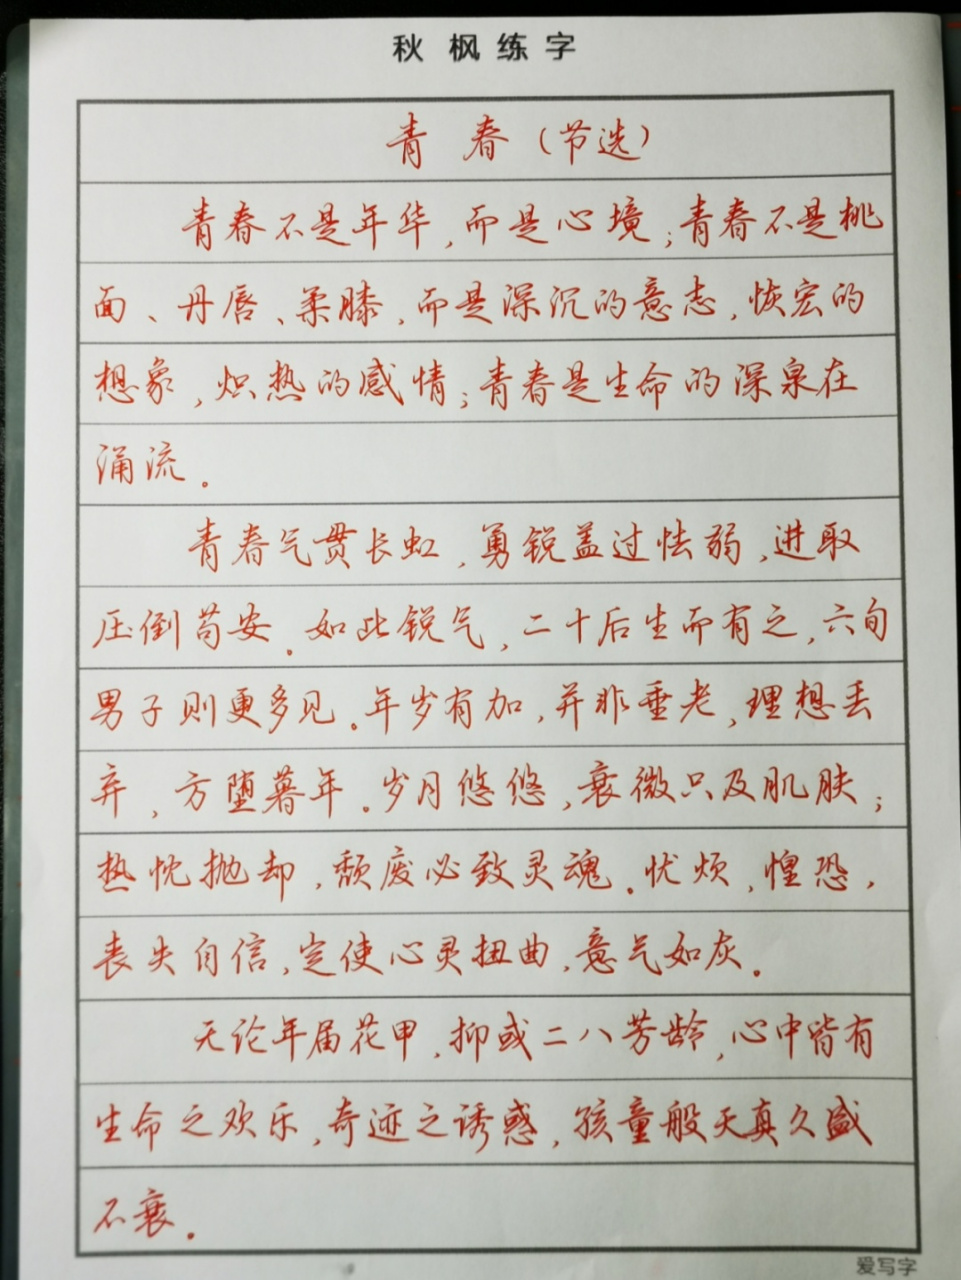 秋枫练字
青春（节选）
青春不是年华，而是心境；青春不是桃
面、丹唇、柔膝，而是深沉的意志，恢宏的
想象，炽热的感情；青春是生命的深泉在
涌流。
青春气贯长虹，勇锐盖过怯弱，进取
压倒苟安。如此锐气，二十后生而有之，六旬
男子则更多见。年岁有加，并非垂老，理想丢
弃，方堕暮年。岁月悠悠，衰微只及肌肤；
热忱抛却，颓废必致灵魂。忧烦，惶恐，
丧失自信，定使心灵扭曲，意气如灰。
无论年届花甲，抑或二八芳龄，心中皆有
生命之欢乐，奇迹之诱惑，孩童般天真久盛
不衰。
爱写字